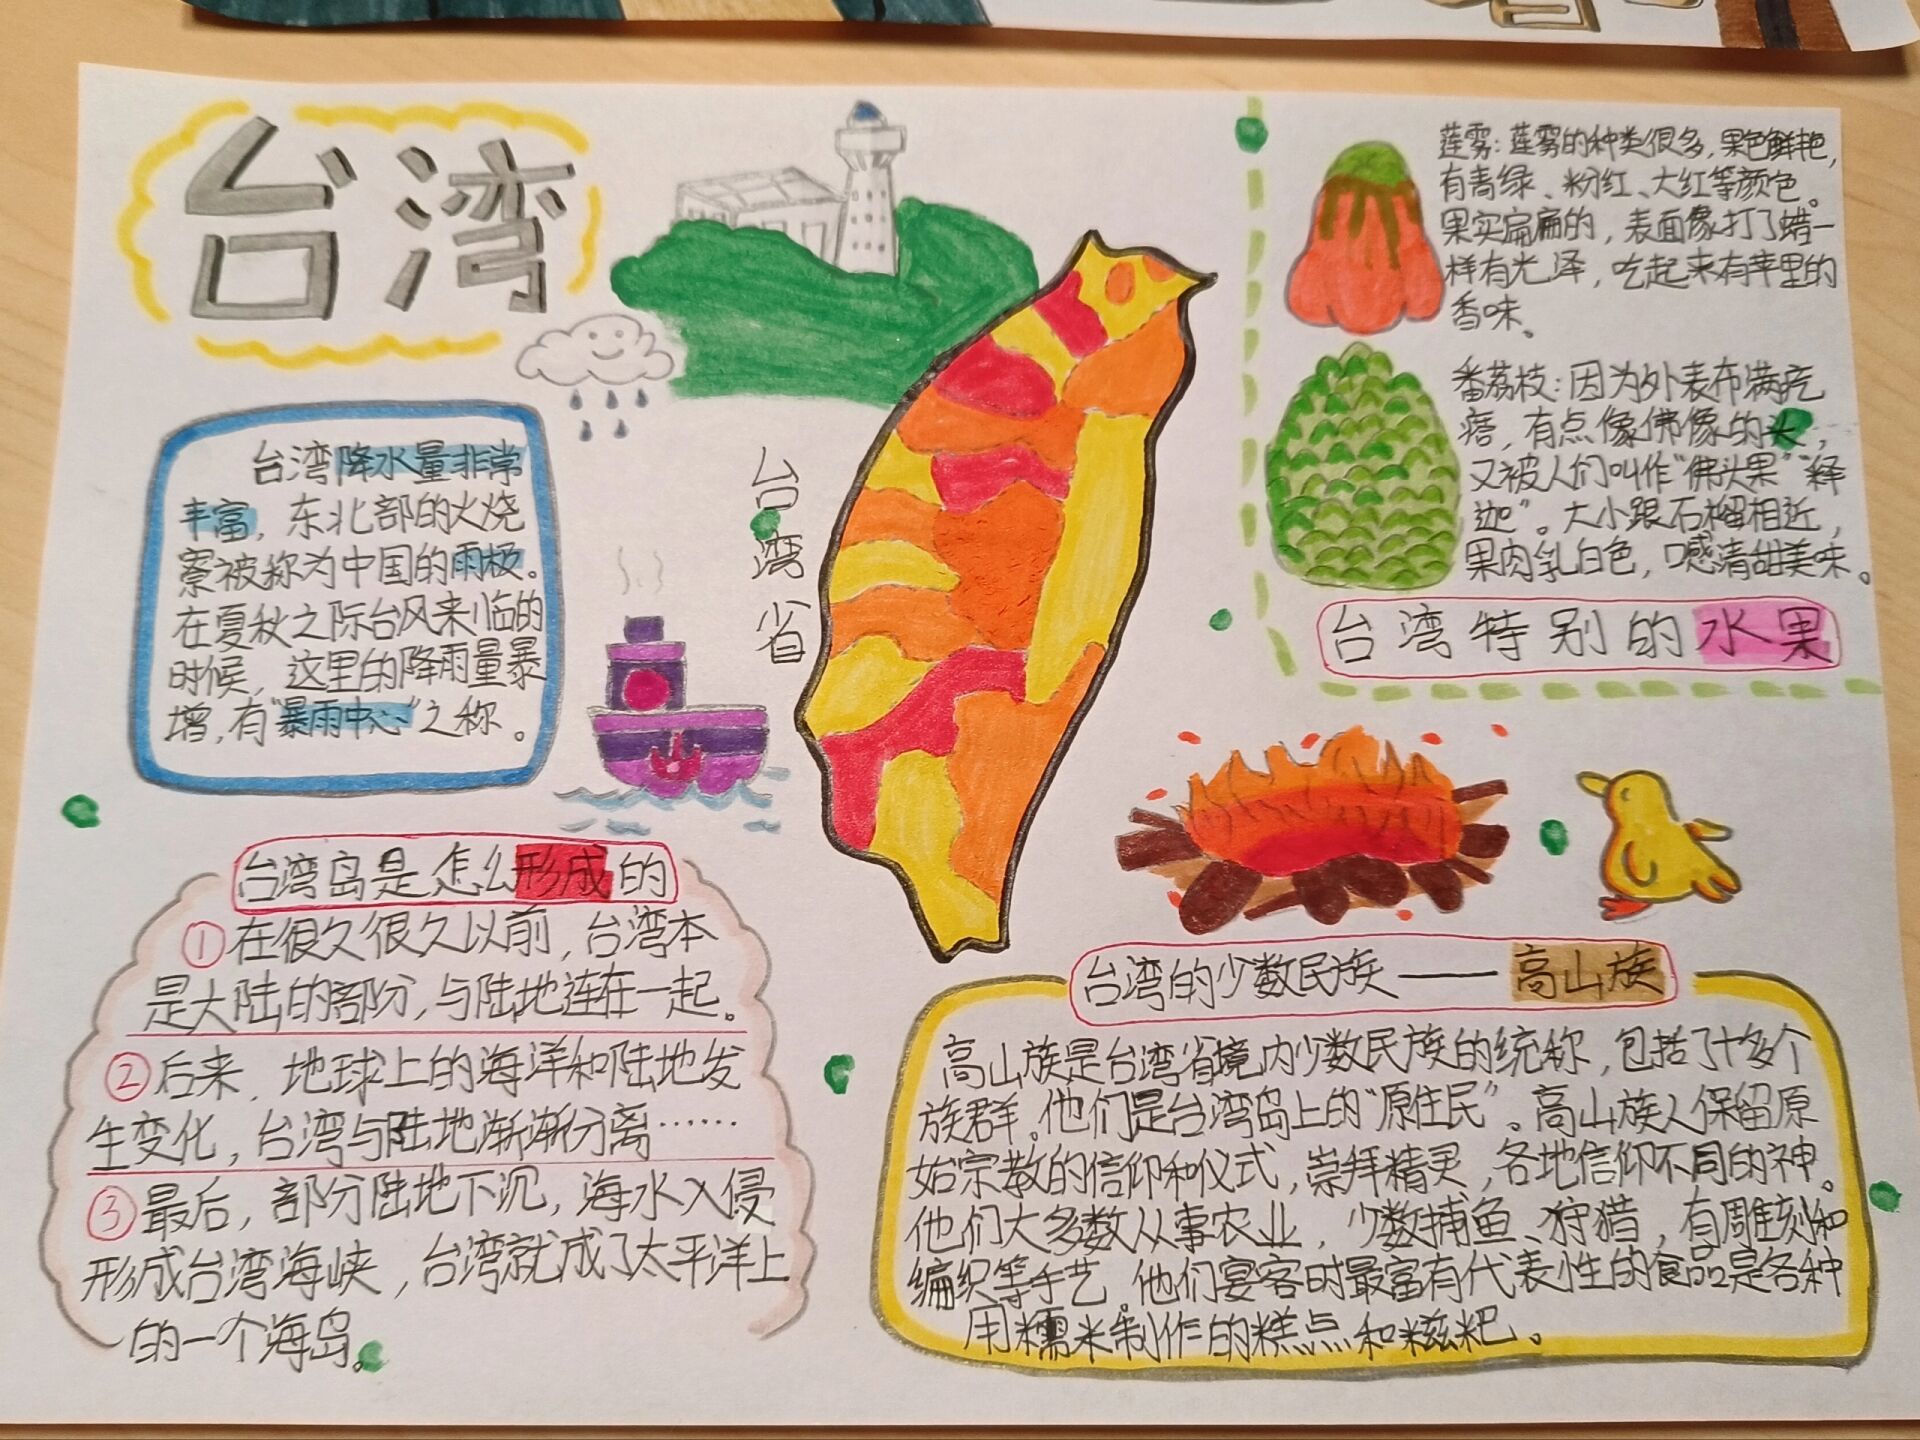 台湾
台湾降水量非常
丰富，东北部的火烧
寮被称为中国的雨极。
在夏秋之际台风来临的
时候，这里的降雨量暴
增，有“暴雨中心”之称。
台湾省
莲雾：莲雾的种类很多，果色鲜艳，
有青绿、粉红、大红等颜色。
果实扁扁的，表面像打了蜡一
样有光泽，吃起来有苹里的
香味、
番荔枝：因为外表布满疙
瘩，有点像佛像的头，
又被人们叫作“佛头果”“释
迦”。大小跟石榴相近，
果肉乳白色，口感清甜美味。
台湾特别的水果
台湾岛是怎么形成的
①在很久很久以前，台湾本
是大陆的部分，与陆地连在一起。
②后来，地球上的海洋和陆地发
生变化，台湾与陆地渐渐分离……
③最后，部分陆地下沉，海水入侵
形成台湾海峡，台湾就成了太平洋上
的一个海岛。
台湾的少数民族——高山族
高山族是台湾省境内少数民族的统称，包括了十多个
族群。他们是台湾岛上的“原住民”。高山族人保留原
始宗教的信仰和仪式，崇拜精灵，各地信仰不同的神。
他们大多数从事农业，少数捕鱼、狩猎，有雕刻和
编织等手艺。他们宴客时最富有代表性的食品是各种
用糯米制作的糕点和糍粑。